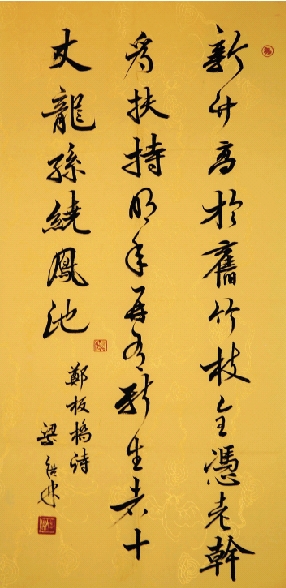 新竹高於舊竹枝全憑老幹
爲扶持明年再有新生者十
丈龍孫繞鳳池
鄭板橋詩
梁